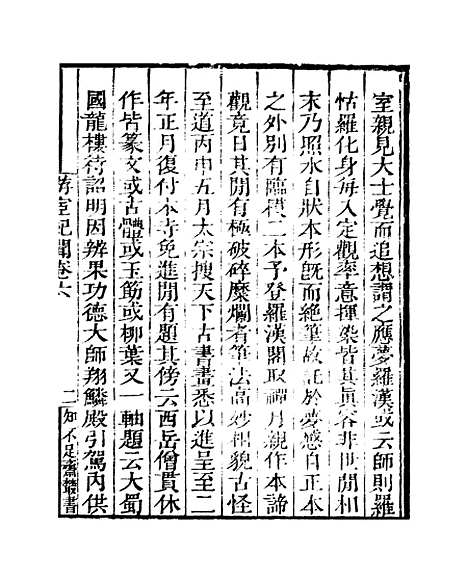 室親見大士覺而追想謂之應夢羅漢或云師則羅
怙羅化身每入定觀率意揮染皆其眞容非世閒相
末乃照水自狀本形旣而絕筆故託於夢感自正本
之外別有臨模二本予登羅漢閣取禪月親作本諦
觀竟日其閒有極破碎糜爛者筆法高妙相貌古怪
至道丙申五月太宗搜天下古書畫悉以進呈至二
年正月復付本寺免進閒有題其傍云西岳僧貫休
作皆篆文或古體或玉筯或柳葉又一軸題云大蜀
國龍樓待詔明因辨果功德大師翔鱗殿引駕內供
游宦紀聞卷六
二
知不足齋叢書